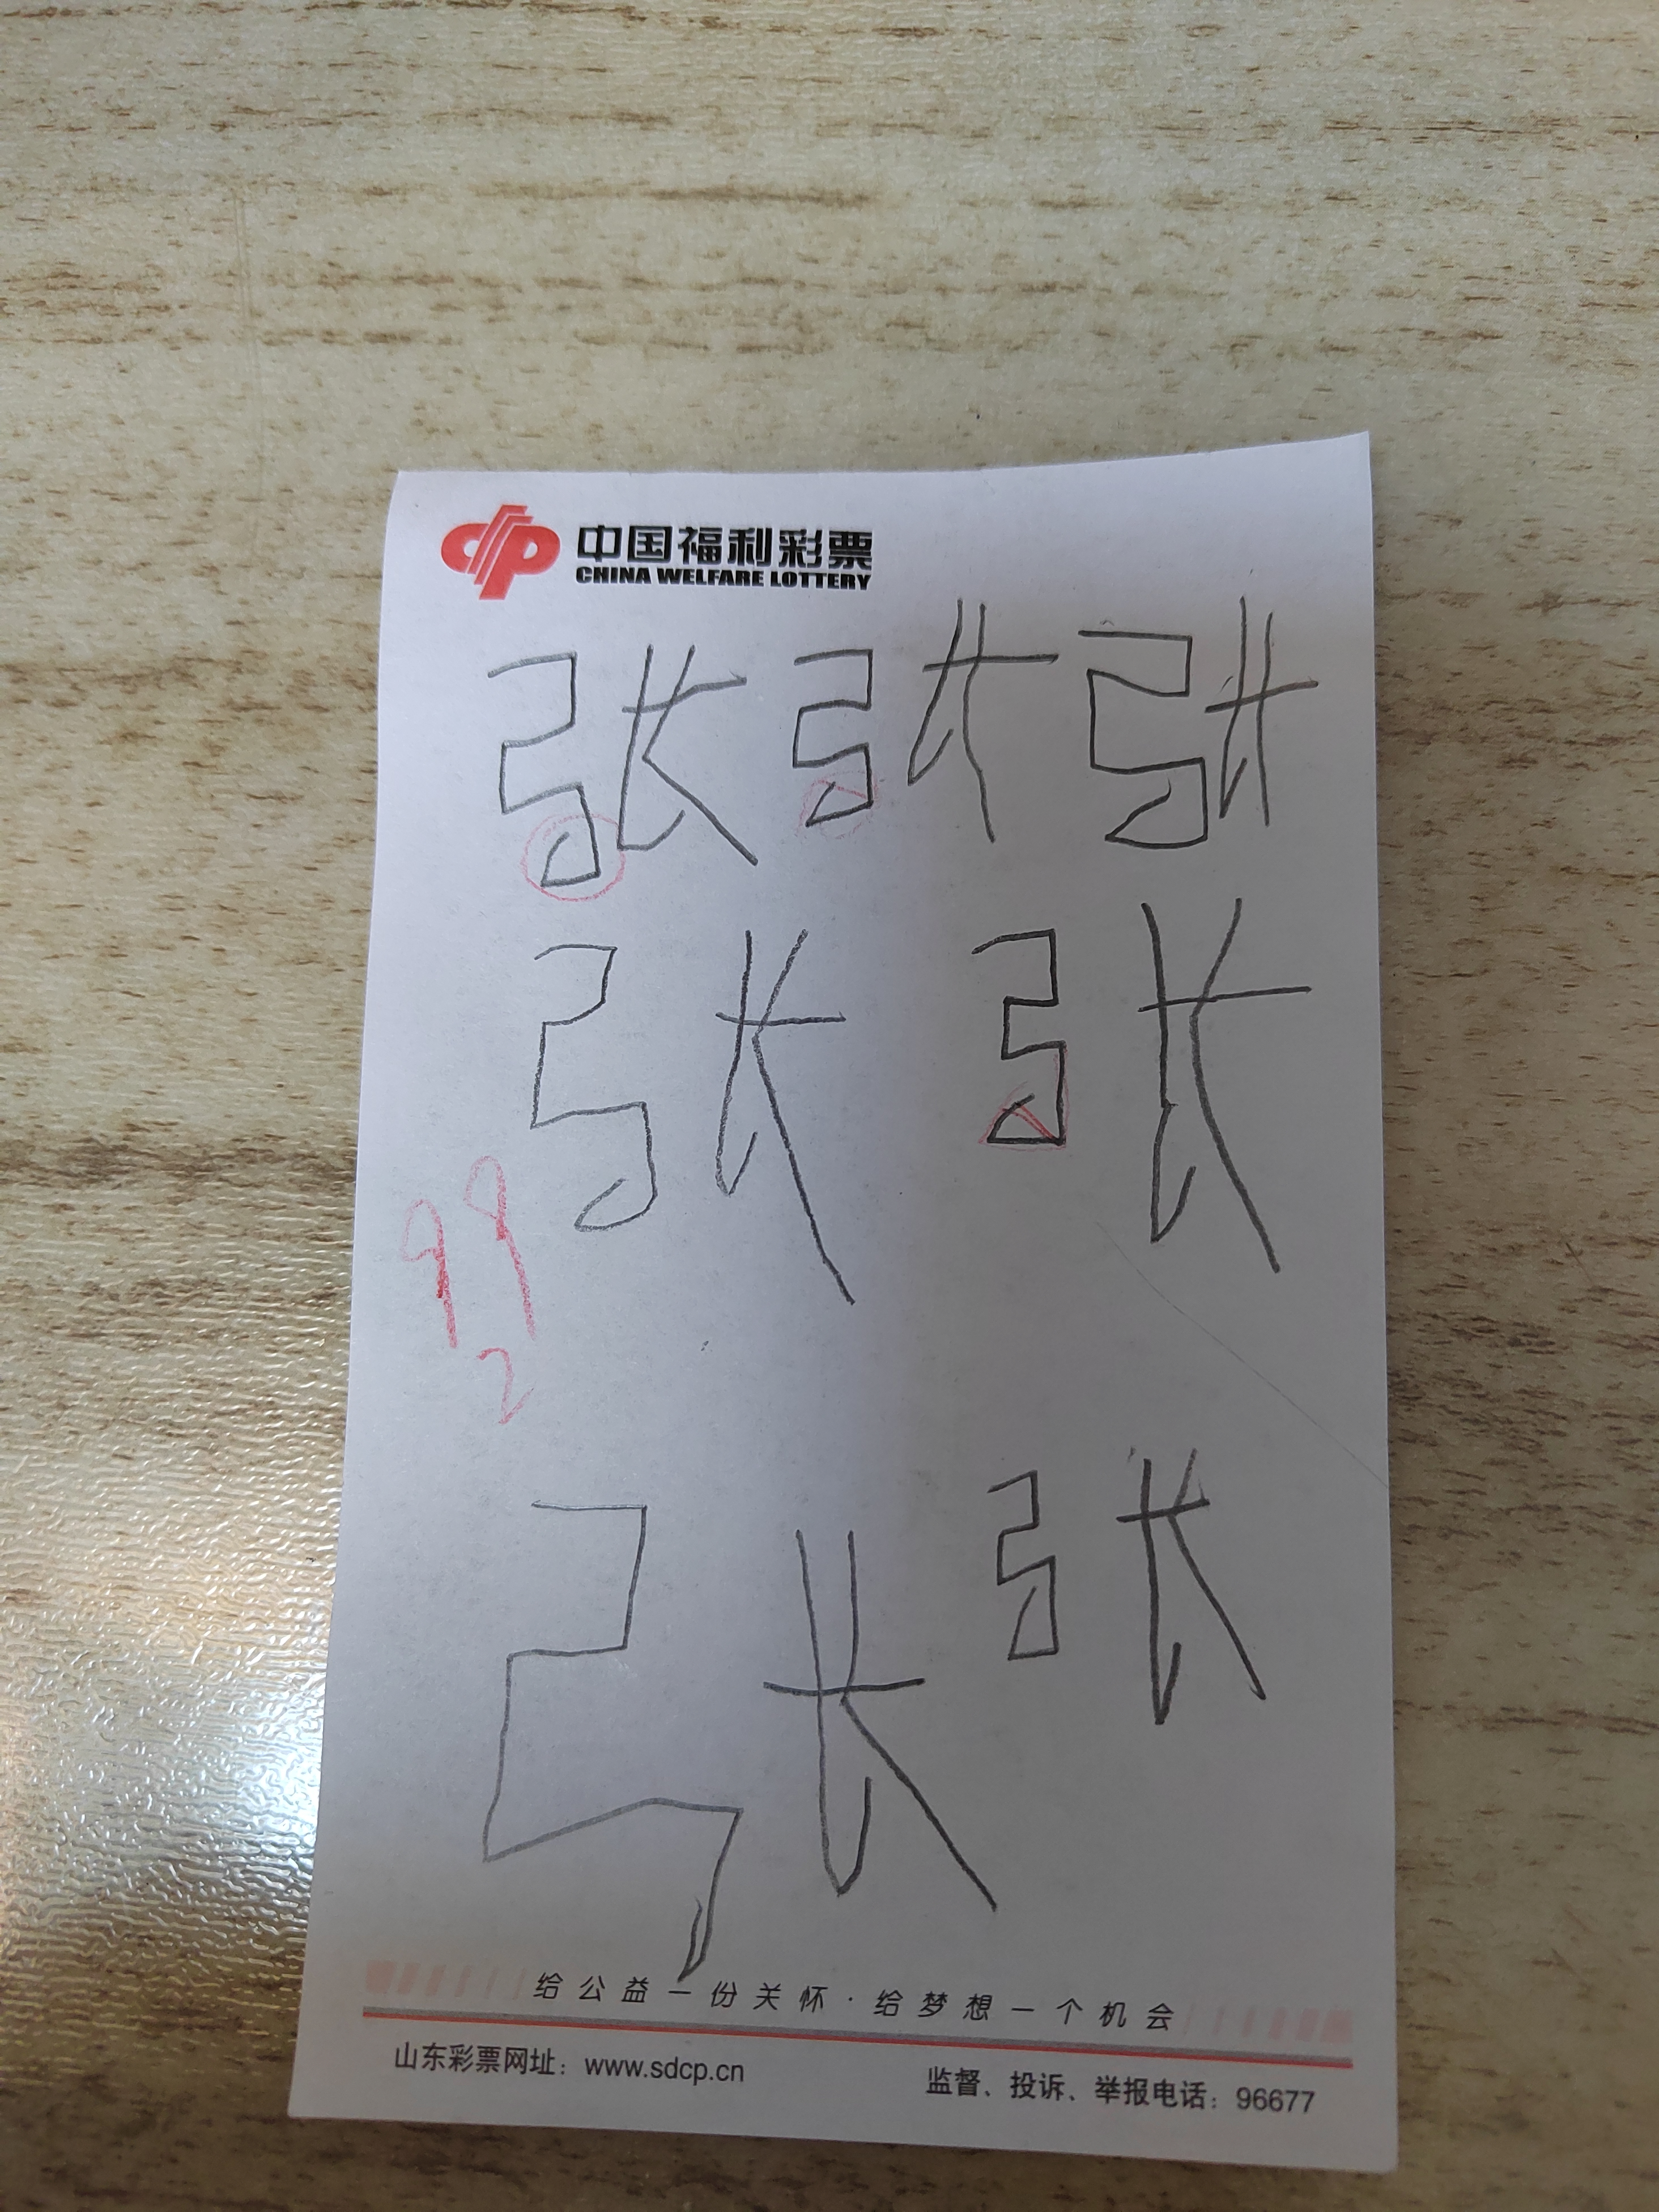 中国福利彩票
CHINA WELFARE LOTTERY
张 张 张
张 张
99
2
张 张
给公益一份关怀·给梦想一个机会
山东彩票网址：www.sdcp.cn 监督、投诉、举报电话：96677